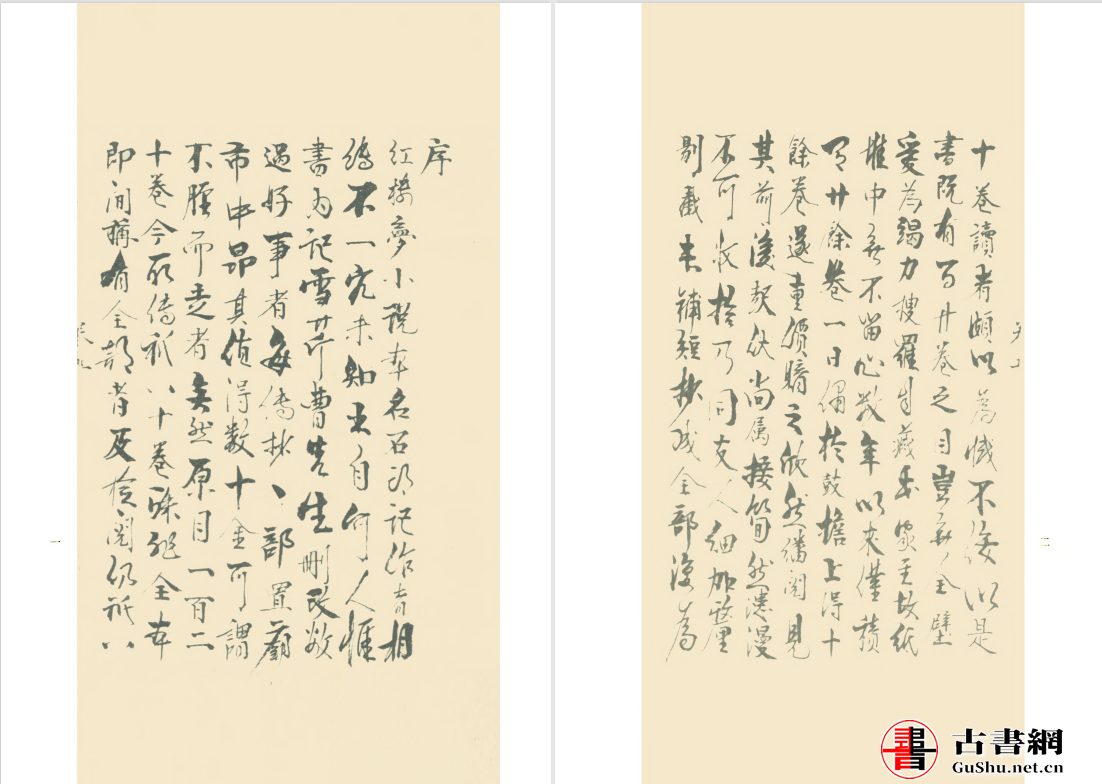 序
紅樓夢小說本名石頭記作者相
傳不一究未知出自何人惟
書內記雪芹曹先生刪改數
過好事者每傳抄一部置廟
市中昂其值得數十金可謂
不脛而走者矣然原目一百二
十卷今所傳秖八十卷殊非全本
即間稱有全部者及檢閱仍秖八
一
十卷讀者頗以為憾不佞以是
書既有百廿卷之目豈無全璧
爰為竭力搜羅自藏書家至故紙
堆中無不留心數年以來僅積
有廿餘卷一日偶於鼓擔上得十
餘卷遂重價購之欣然繙閱見
其前後起伏尚屬接筍然漶漫
不可收拾乃同友人細加釐
剔截長補短抄成全部復為
二
書
古書網
GuShu.net.cn